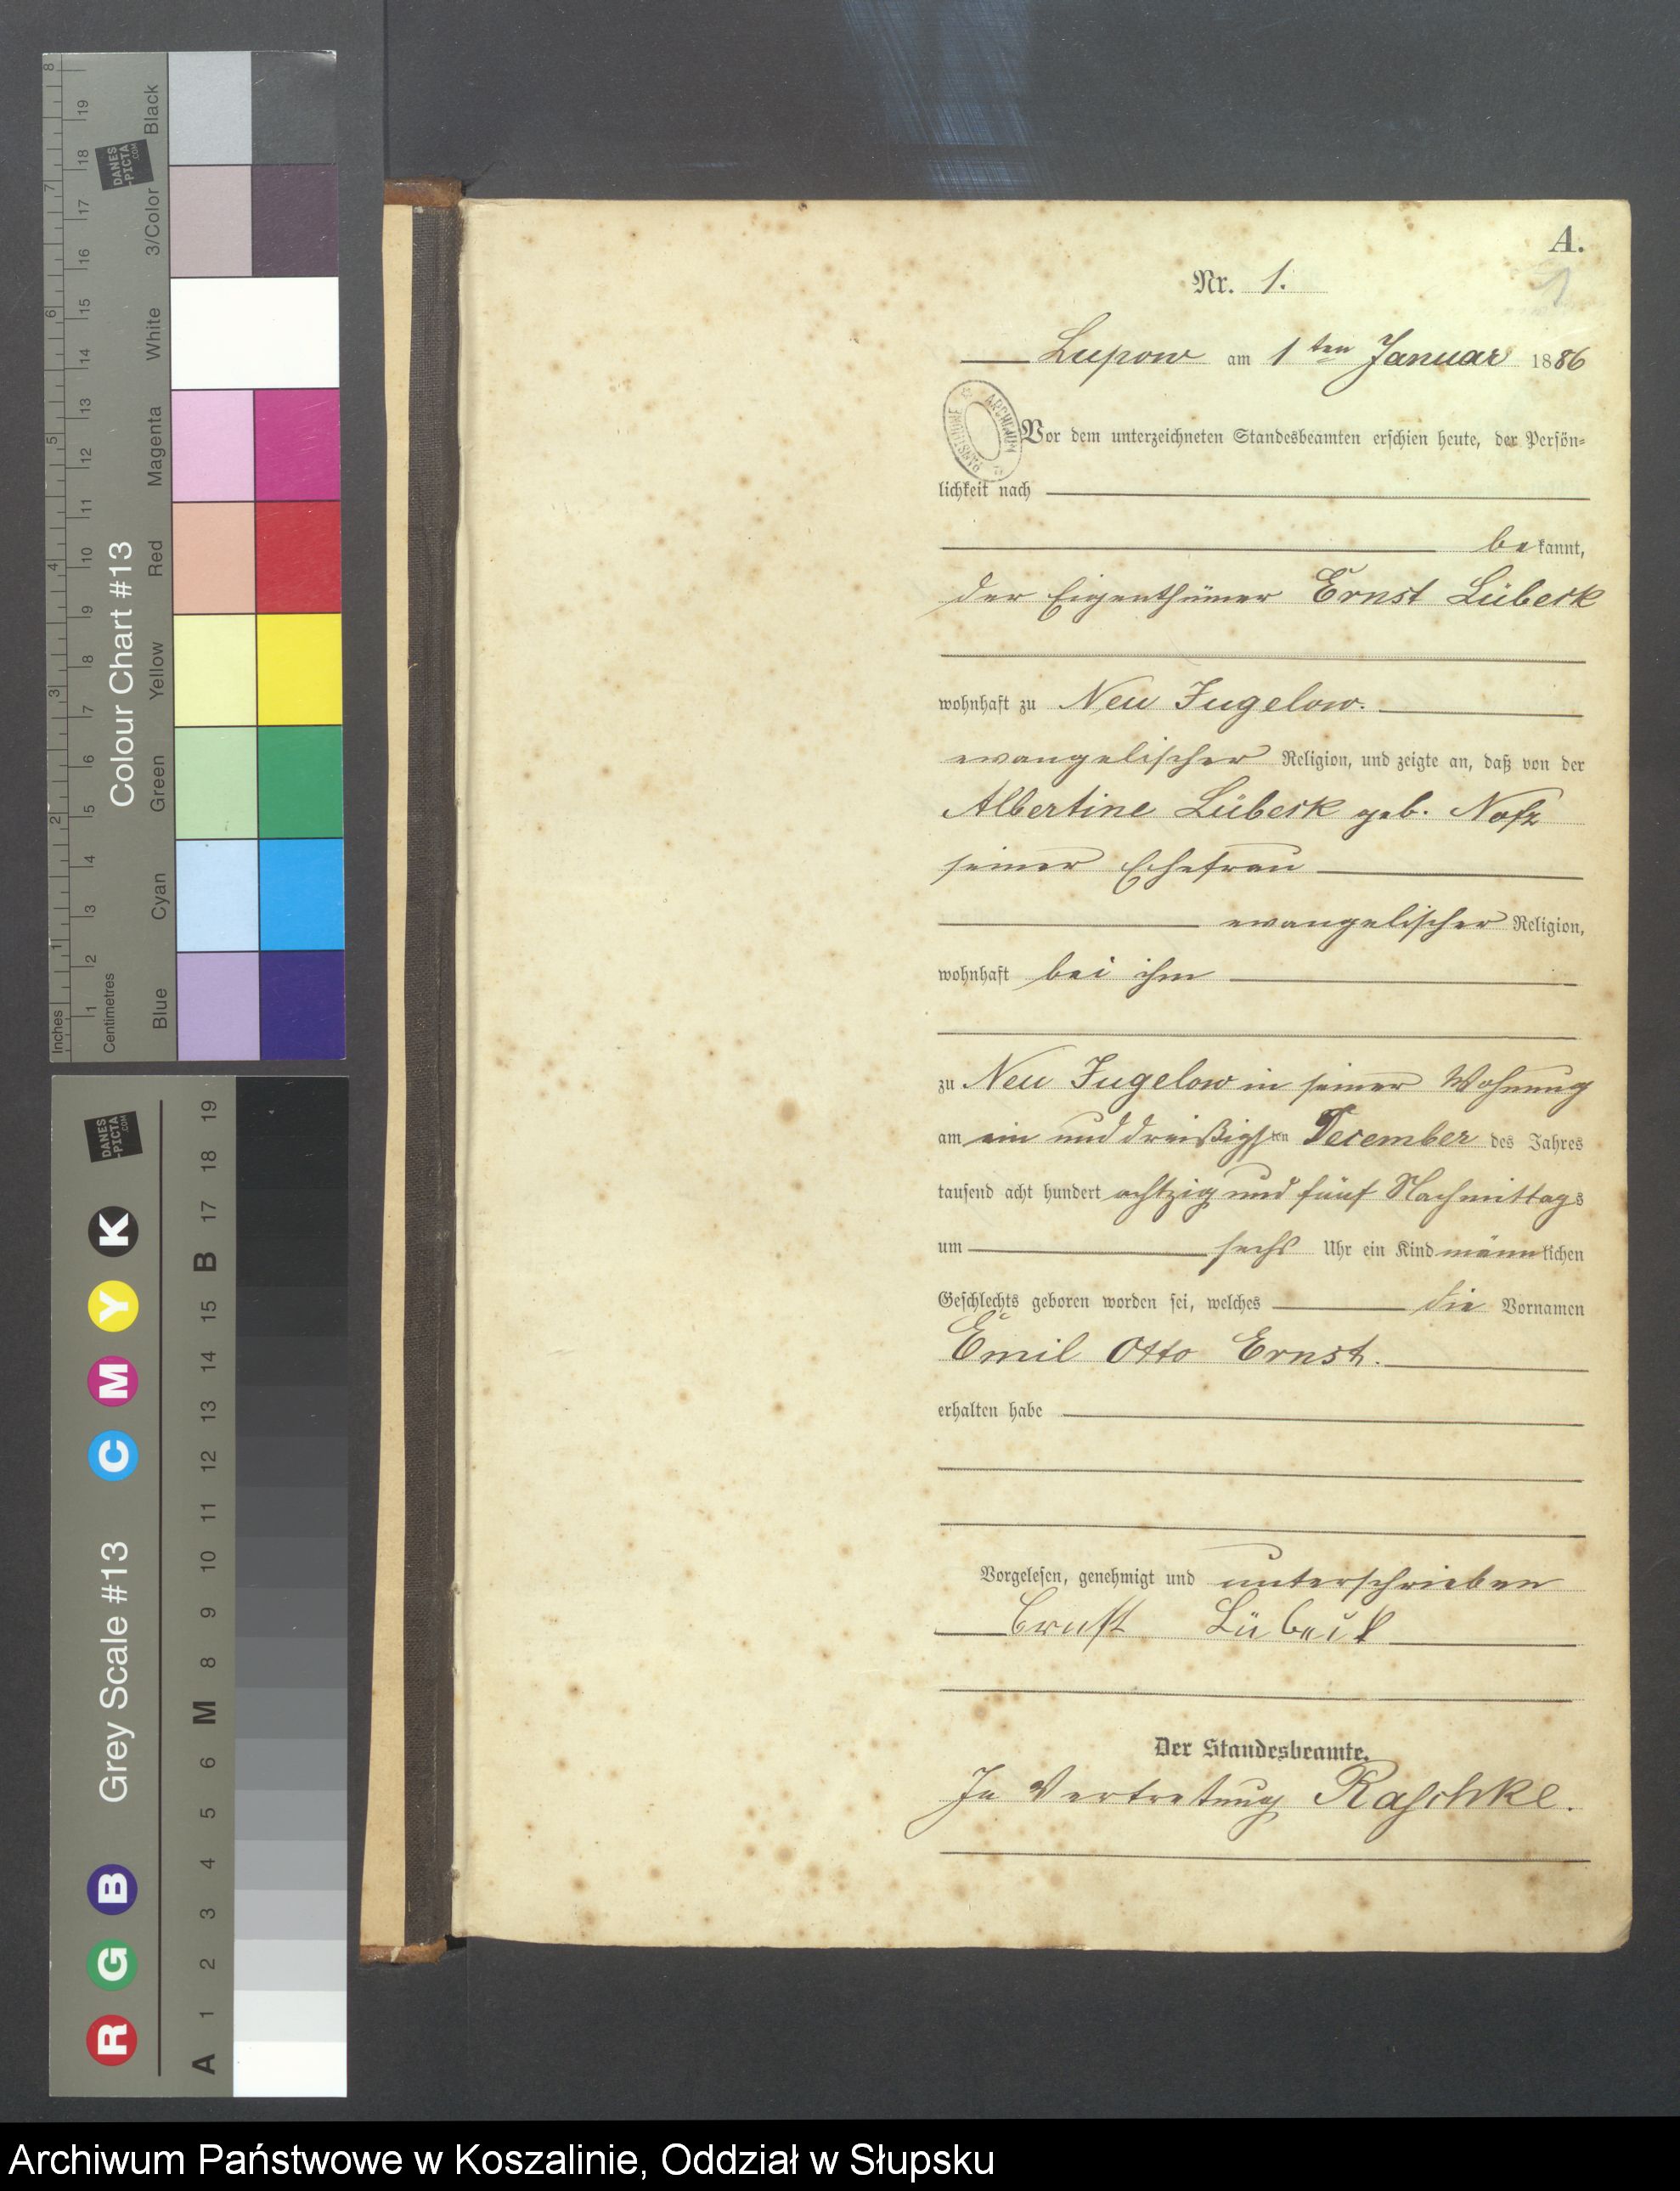 A.
Nr. 1.
1
Lupow am 1ten Januar 1886
ARCHIWUM PAŃSTWOWE
Vor dem unterzeichneten Standesbeamten erschien heute, der Persön=
lichkeit nach
bekannt,
der Eigenthümer Ernst Lübeck
wohnhaft zu Neu Jugelow.
evangelischer Religion, und zeigte an, daß von der
Albertine Lübeck geb. Nofz
seiner Ehefrau
evangelischer Religion,
wohnhaft bei ihm
zu Neu Jugelow in seiner Wohnung
am ein und dreißigsten December des Jahres
tausend acht hundert achtzig und fünf Nachmittags
um sechs Uhr ein Kind männlichen
Geschlechts geboren worden sei, welches die Vornamen
Emil Otto Ernst.
erhalten habe
Vorgelesen, genehmigt und unterschrieben
Ernst Lübeck
Der Standesbeamte.
In Vertretung Raschke.
Colour Chart #13
Inches
1 2 3 4 5 6 7 8
Centimetres
1 2 3 4 5 6 7 8 9 10 11 12 13 14 15 16 17 18 19
Blue Cyan Green Yellow Red Magenta White 3/Color Black
DANES
-PICTA
.COM
Grey Scale #13
R G B C M Y K
A 1 2 3 4 5 6 M 8 9 10 11 12 13 14 15 B 17 18 19
DANES
-PICTA
.COM
Archiwum Państwowe w Koszalinie, Oddział w Słupsku